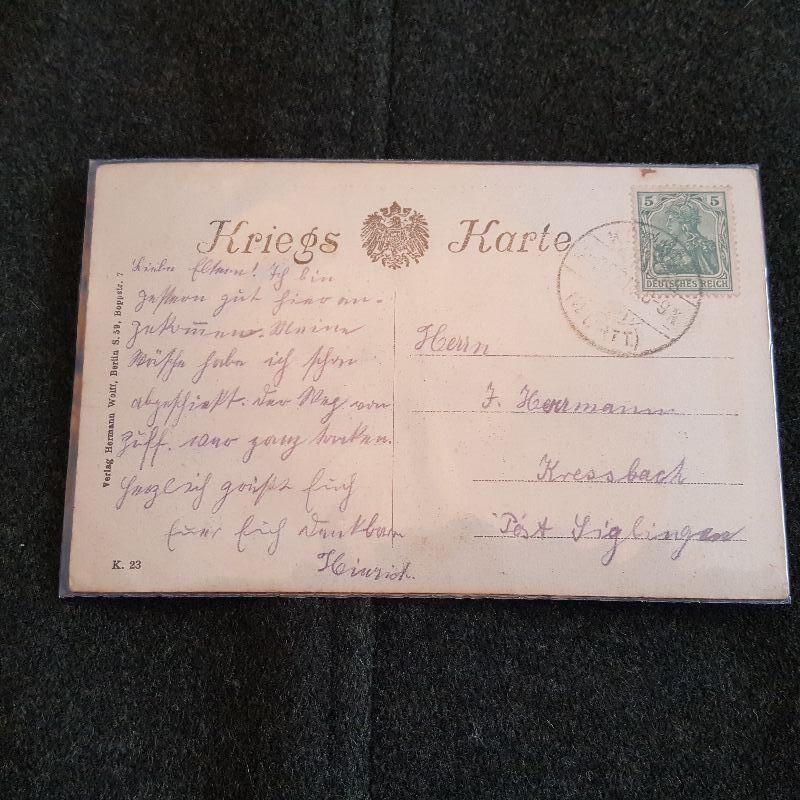 Kriegs Karte
5 5
DEUTSCHES REICH
Verlag Hermann Wolff, Berlin S. 59, Boppstr. 7
Lieben Eltern! Ich bin
gestern gut hier an-
gekommen. Meine
Wäsche habe ich schon
abgeschickt. Der Weg von
Züff. war ganz trocken.
Herzlich grüßt Euch
Euer Euch dankbarer
Heinrich.
Herrn
J. Herrmann
Kressbach
Post Siglingen
K. 23